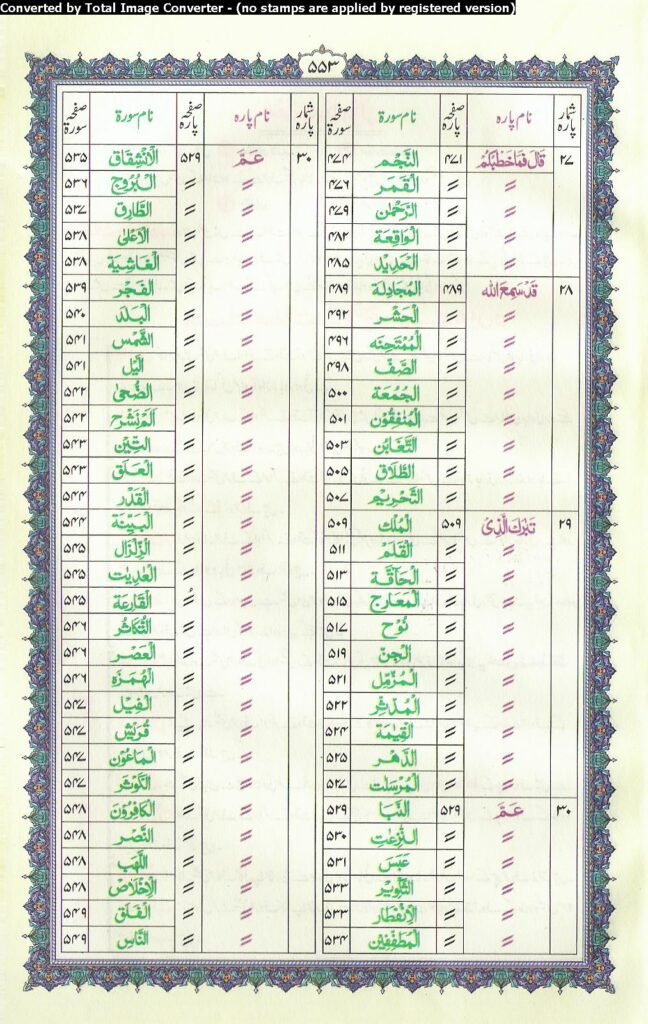 Converted by Total Image Converter - (no stamps are applied by registered version)
۵۵۳
شمار پارہ نام پارہ صفحہ پارہ نام سورۃ صفحہ سورۃ
۲۷ قَالَ فَمَا خَطْبُكُمْ ۴۷۱ النَّجْم ۴۷۴
〃 〃 الْقَمَر ۴۷۶
〃 〃 الرَّحْمٰن ۴۷۹
〃 〃 الْوَاقِعَة ۴۸۲
〃 〃 الْحَدِيْد ۴۸۵
۲۸ قَدْ سَمِعَ اللّٰه ۴۸۹ الْمُجَادِلَة ۴۸۹
〃 〃 الْحَشْر ۴۹۲
〃 〃 الْمُمْتَحِنَه ۴۹۶
〃 〃 الصَّفّ ۴۹۸
〃 〃 الْجُمُعَة ۵۰۰
〃 〃 الْمُنٰفِقُوْن ۵۰۱
〃 〃 التَّغَابُن ۵۰۳
〃 〃 الطَّلَاق ۵۰۵
〃 〃 التَّحْرِيْم ۵۰۷
۲۹ تَبٰرَكَ الَّذِىْ ۵۰۹ الْمُلْك ۵۰۹
〃 〃 الْقَلَم ۵۱۱
〃 〃 الْحَآقَّة ۵۱۳
〃 〃 الْمَعَارِج ۵۱۵
〃 〃 نُوْح ۵۱۷
〃 〃 الْجِنّ ۵۱۹
〃 〃 الْمُزَّمِّل ۵۲۱
〃 〃 الْمُدَّثِّر ۵۲۲
〃 〃 الْقِيٰمَة ۵۲۴
〃 〃 الدَّهْر ۵۲۵
〃 〃 الْمُرْسَلٰت ۵۲۷
۳۰ عَمَّ ۵۲۹ النَّبَا ۵۲۹
〃 〃 النّٰزِعٰت ۵۳۰
〃 〃 عَبَسَ ۵۳۱
〃 〃 التَّكْوِيْر ۵۳۳
〃 〃 الْاِنْفِطَار ۵۳۳
〃 〃 الْمُطَفِّفِيْن ۵۳۴
شمار پارہ نام پارہ صفحہ پارہ نام سورۃ صفحہ سورۃ
۳۰ عَمَّ ۵۲۹ الْاِنْشِقَاق ۵۳۵
〃 〃 الْبُرُوْج ۵۳۶
〃 〃 الطَّارِق ۵۳۷
〃 〃 الْاَعْلٰى ۵۳۸
〃 〃 الْغَاشِيَة ۵۳۸
〃 〃 الْفَجْر ۵۳۹
〃 〃 الْبَلَد ۵۴۰
〃 〃 الشَّمْس ۵۴۱
〃 〃 الَّيْل ۵۴۱
〃 〃 الضُّحٰى ۵۴۲
〃 〃 اَلَمْ نَشْرَح ۵۴۲
〃 〃 التِّيْن ۵۴۳
〃 〃 الْعَلَق ۵۴۳
〃 〃 الْقَدْر ۵۴۴
〃 〃 الْبَيِّنَة ۵۴۴
〃 〃 الزِّلْزَال ۵۴۵
〃 〃 الْعٰدِيٰت ۵۴۵
〃 〃 الْقَارِعَة ۵۴۵
〃 〃 التَّكَاثُر ۵۴۶
〃 〃 الْعَصْر ۵۴۶
〃 〃 الْهُمَزَه ۵۴۶
〃 〃 الْفِيْل ۵۴۷
〃 〃 قُرَيْش ۵۴۷
〃 〃 الْمَاعُوْن ۵۴۷
〃 〃 الْكَوْثَر ۵۴۷
〃 〃 الْكَافِرُوْن ۵۴۸
〃 〃 النَّصْر ۵۴۸
〃 〃 اللَّهَب ۵۴۸
〃 〃 الْاِخْلَاص ۵۴۸
〃 〃 الْفَلَق ۵۴۹
〃 〃 النَّاس ۵۴۹